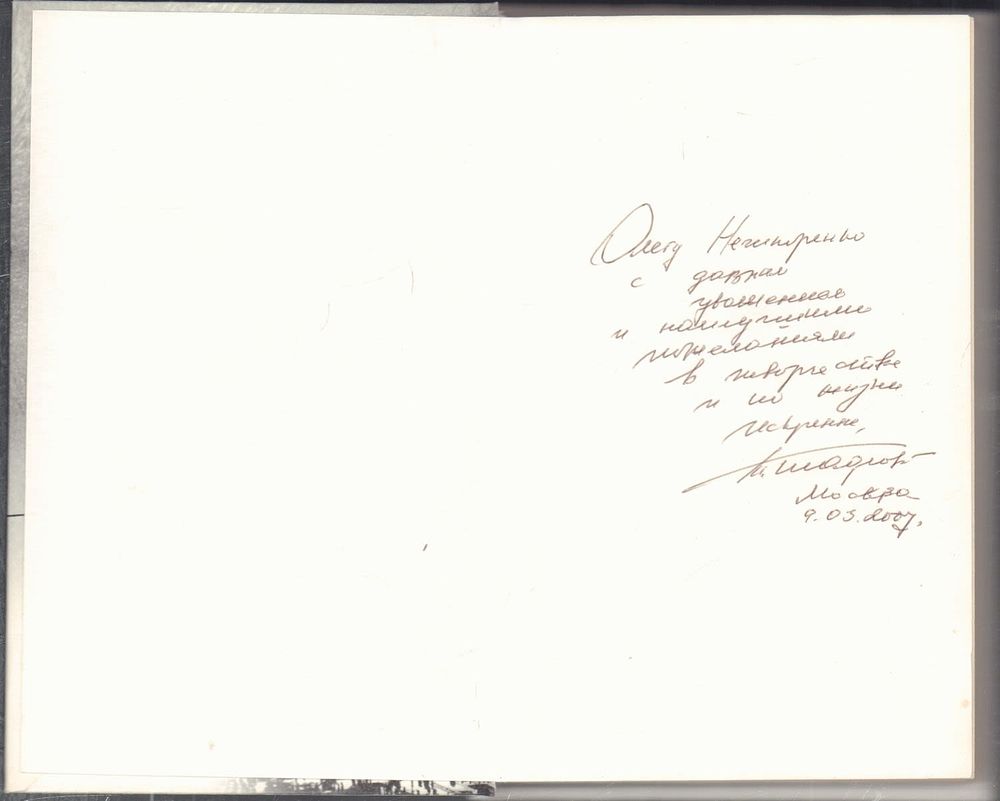 Олегу Нечипоренко
с давним
уважением
и наилучшими
пожеланиями
в творчестве
и по жизни
Искренне,
Москва
9.03.2007.